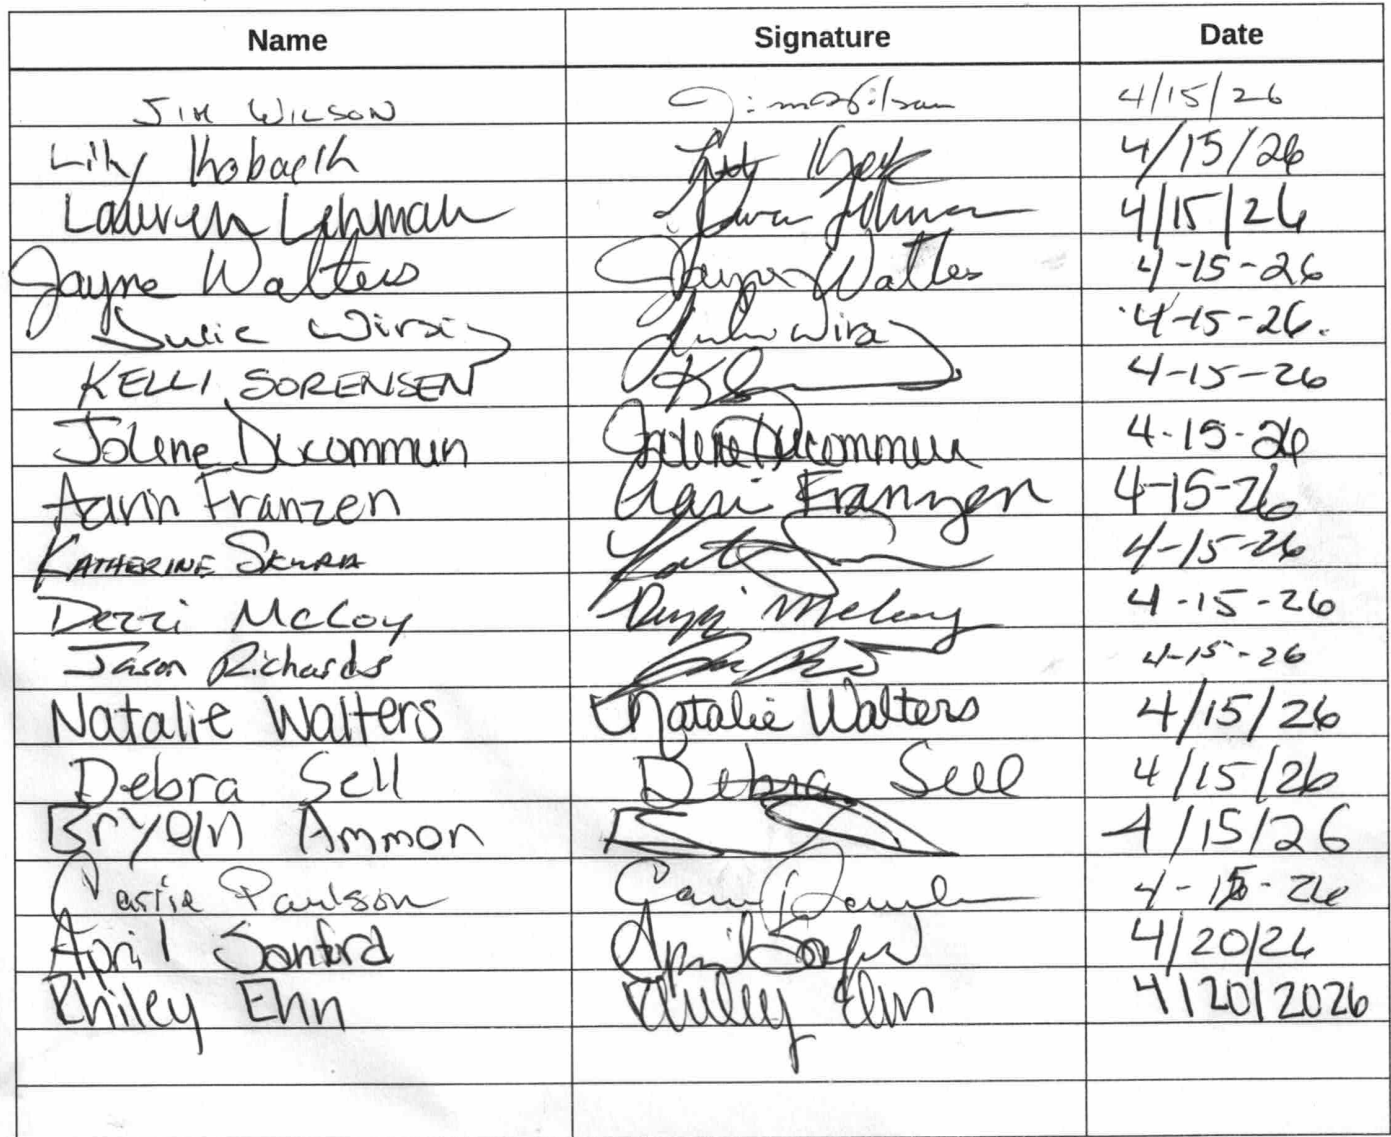 Name Signature Date
JIM WILSON Jim Wilson 4/15/26
Lily 4/15/26
Lauren Lehman Lauren Lehman 4/15/26
Jayne Walters Jayne Walters 4-15-26
Julie Wirsig Julie Wirsig 4-15-26.
KELLI SORENSEN 4-15-26
Jolene Ducommun Jolene Ducommun 4-15-26
Franzen Franzen 4-15-26
KATHERINE SKURA 4-15-26
Dezzi McCoy Dezzi McCoy 4-15-26
Jason Richards 4-15-26
Natalie Walters Natalie Walters 4/15/26
Debra Sell Debra Sell 4/15/26
Bryan Ammon 4/15/26
Paulson 4-15-26
April Sanford April 4/20/26
Rhiley Ehn Rhiley Ehn 4/20/2026